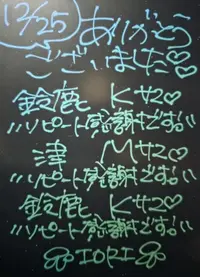 12/25 ありがとう
ございました♡
鈴鹿 Kサン♡
〃リピート感謝です!!〃
津 Mサン♡
〃リピート感謝です!!〃
鈴鹿 Kサン♡
〃リピート感謝です!!〃
IORI